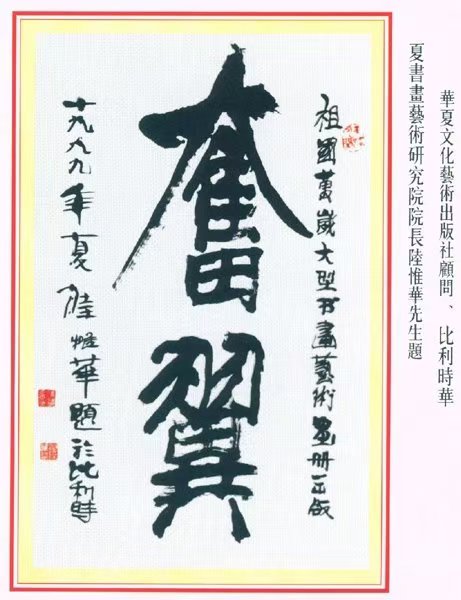 華夏文化藝術出版社顧問、比利時華
夏書畫藝術研究院院長陸惟華先生題
祖國萬歲大型书畫藝術畫册
奮翼
一九九九年夏陸惟華題於比利時